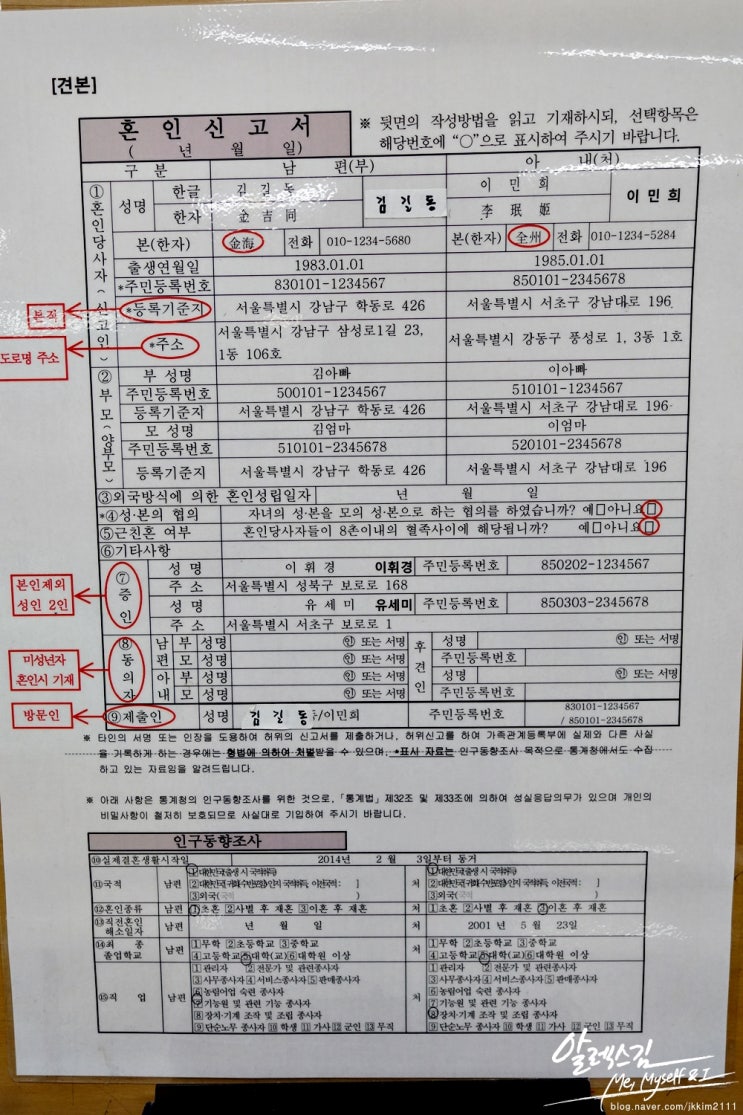 [견본]
혼 인 신 고 서
( 년 월 일)
※ 뒷면의 작성방법을 읽고 기재하시되, 선택항목은
해당번호에 "○"으로 표시하여 주시기 바랍니다.
구 분 남 편(부) 아 내(처)
①혼인당사자(신고인)
성명 한글 김 길 동 김 길 동 이 민 희 이 민 희
한자 金 吉 同 李 珉 姬
본(한자) 金海 전화 010-1234-5680 본(한자) 全州 전화 010-1234-5284
출생연월일 1983.01.01 1985.01.01
*주민등록번호 830101-1234567 850101-2345678
본적
*등록기준지 서울특별시 강남구 학동로 426 서울특별시 서초구 강남대로 196
도로명 주소
*주소 서울특별시 강남구 삼성로1길 23, 1동 106호 서울특별시 강동구 풍성로 1, 3동 1호
②부모(양부모)
부 성명 김아빠 이아빠
주민등록번호 500101-1234567 510101-1234567
등록기준지 서울특별시 강남구 학동로 426 서울특별시 서초구 강남대로 196
모 성명 김엄마 이엄마
주민등록번호 510101-2345678 520101-2345678
등록기준지 서울특별시 강남구 학동로 426 서울특별시 서초구 강남대로 196
③외국방식에 의한 혼인성립일자 년 월 일
*④성·본의 협의 자녀의 성·본을 모의 성·본으로 하는 협의를 하였습니까? 예□아니요□
⑤근친혼 여부 혼인당사자들이 8촌이내의 혈족사이에 해당됩니까? 예□아니요□
⑥기타사항
본인제외
성인 2인
⑦증인
성 명 이 휘 경 이휘경 주민등록번호 850202-1234567
주 소 서울특별시 성북구 보로로 168
성 명 유 세 미 유세미 주민등록번호 850303-2345678
주 소 서울특별시 서초구 보로로 1
미성년자
혼인시 기재
⑧동의자
남편 부 성명 ㊞ 또는 서명 후견인 성명 ㊞ 또는 서명
모 성명 ㊞ 또는 서명 주민등록번호
아내 부 성명 ㊞ 또는 서명 성명 ㊞ 또는 서명
모 성명 ㊞ 또는 서명 주민등록번호
방문인
⑨제출인 성명 김 길 동 /이민희 주민등록번호 830101-1234567
/ 850101-2345678
※ 타인의 서명 또는 인장을 도용하여 허위의 신고서를 제출하거나, 허위신고를 하여 가족관계등록부에 실제와 다른 사실
을 기록하게 하는 경우에는 형법에 의하여 처벌받을 수 있으며, *표시 자료는 인구동향조사 목적으로 통계청에서도 수집
하고 있는 자료임을 알려드립니다.
※ 아래 사항은 통계청의 인구동향조사를 위한 것으로, 「통계법」 제32조 및 제33조에 의하여 성실응답의무가 있으며 개인의
비밀사항이 철저히 보호되므로 사실대로 기입하여 주시기 바랍니다.
인구동향조사
⑩실제결혼생활시작일 2014년 2 월 3일부터 동거
⑪국적 남편 ①대한민국(출생 시 국적취득) 처 ①대한민국(출생 시 국적취득)
②대한민국(귀화(수반포함)인지 국적취득, 이전국적: ] ②대한민국(귀화(수반포함)인지 국적취득, 이전국적: ]
③외국(국적 ) ③외국(국적 )
⑫혼인종류 남편 ①초혼 ②사별 후 재혼 ③이혼 후 재혼 처 ①초혼 ②사별 후 재혼 ③이혼 후 재혼
⑬직전혼인 해소일자 남편 년 월 일 처 2001 년 5 월 23일
⑭최 종 졸업학교 남편 ①무학 ②초등학교 ③중학교 처 ①무학 ②초등학교 ③중학교
④고등학교 ⑤대학(교) ⑥대학원 이상 ④고등학교 ⑤대학(교) ⑥대학원 이상
⑮직 업 남편 ①관리자 ②전문가 및 관련종사자 처 ①관리자 ②전문가 및 관련종사자
③사무종사자 ④서비스종사자 ⑤판매종사자 ③사무종사자 ④서비스종사자 ⑤판매종사자
⑥농림어업 숙련 종사자 ⑥농림어업 숙련 종사자
⑦기능원 및 관련 기능 종사자 ⑦기능원 및 관련 기능 종사자
⑧장치·기계 조작 및 조립 종사자 ⑧장치·기계 조작 및 조립 종사자
⑨단순노무 종사자 ⑩학생 ⑪가사 ⑫군인 ⑬무직 ⑨단순노무 종사자 ⑩학생 ⑪가사 ⑫군인 ⑬무직
알렉스김
Me, Myself & I
blog.naver.com/jkkim2111